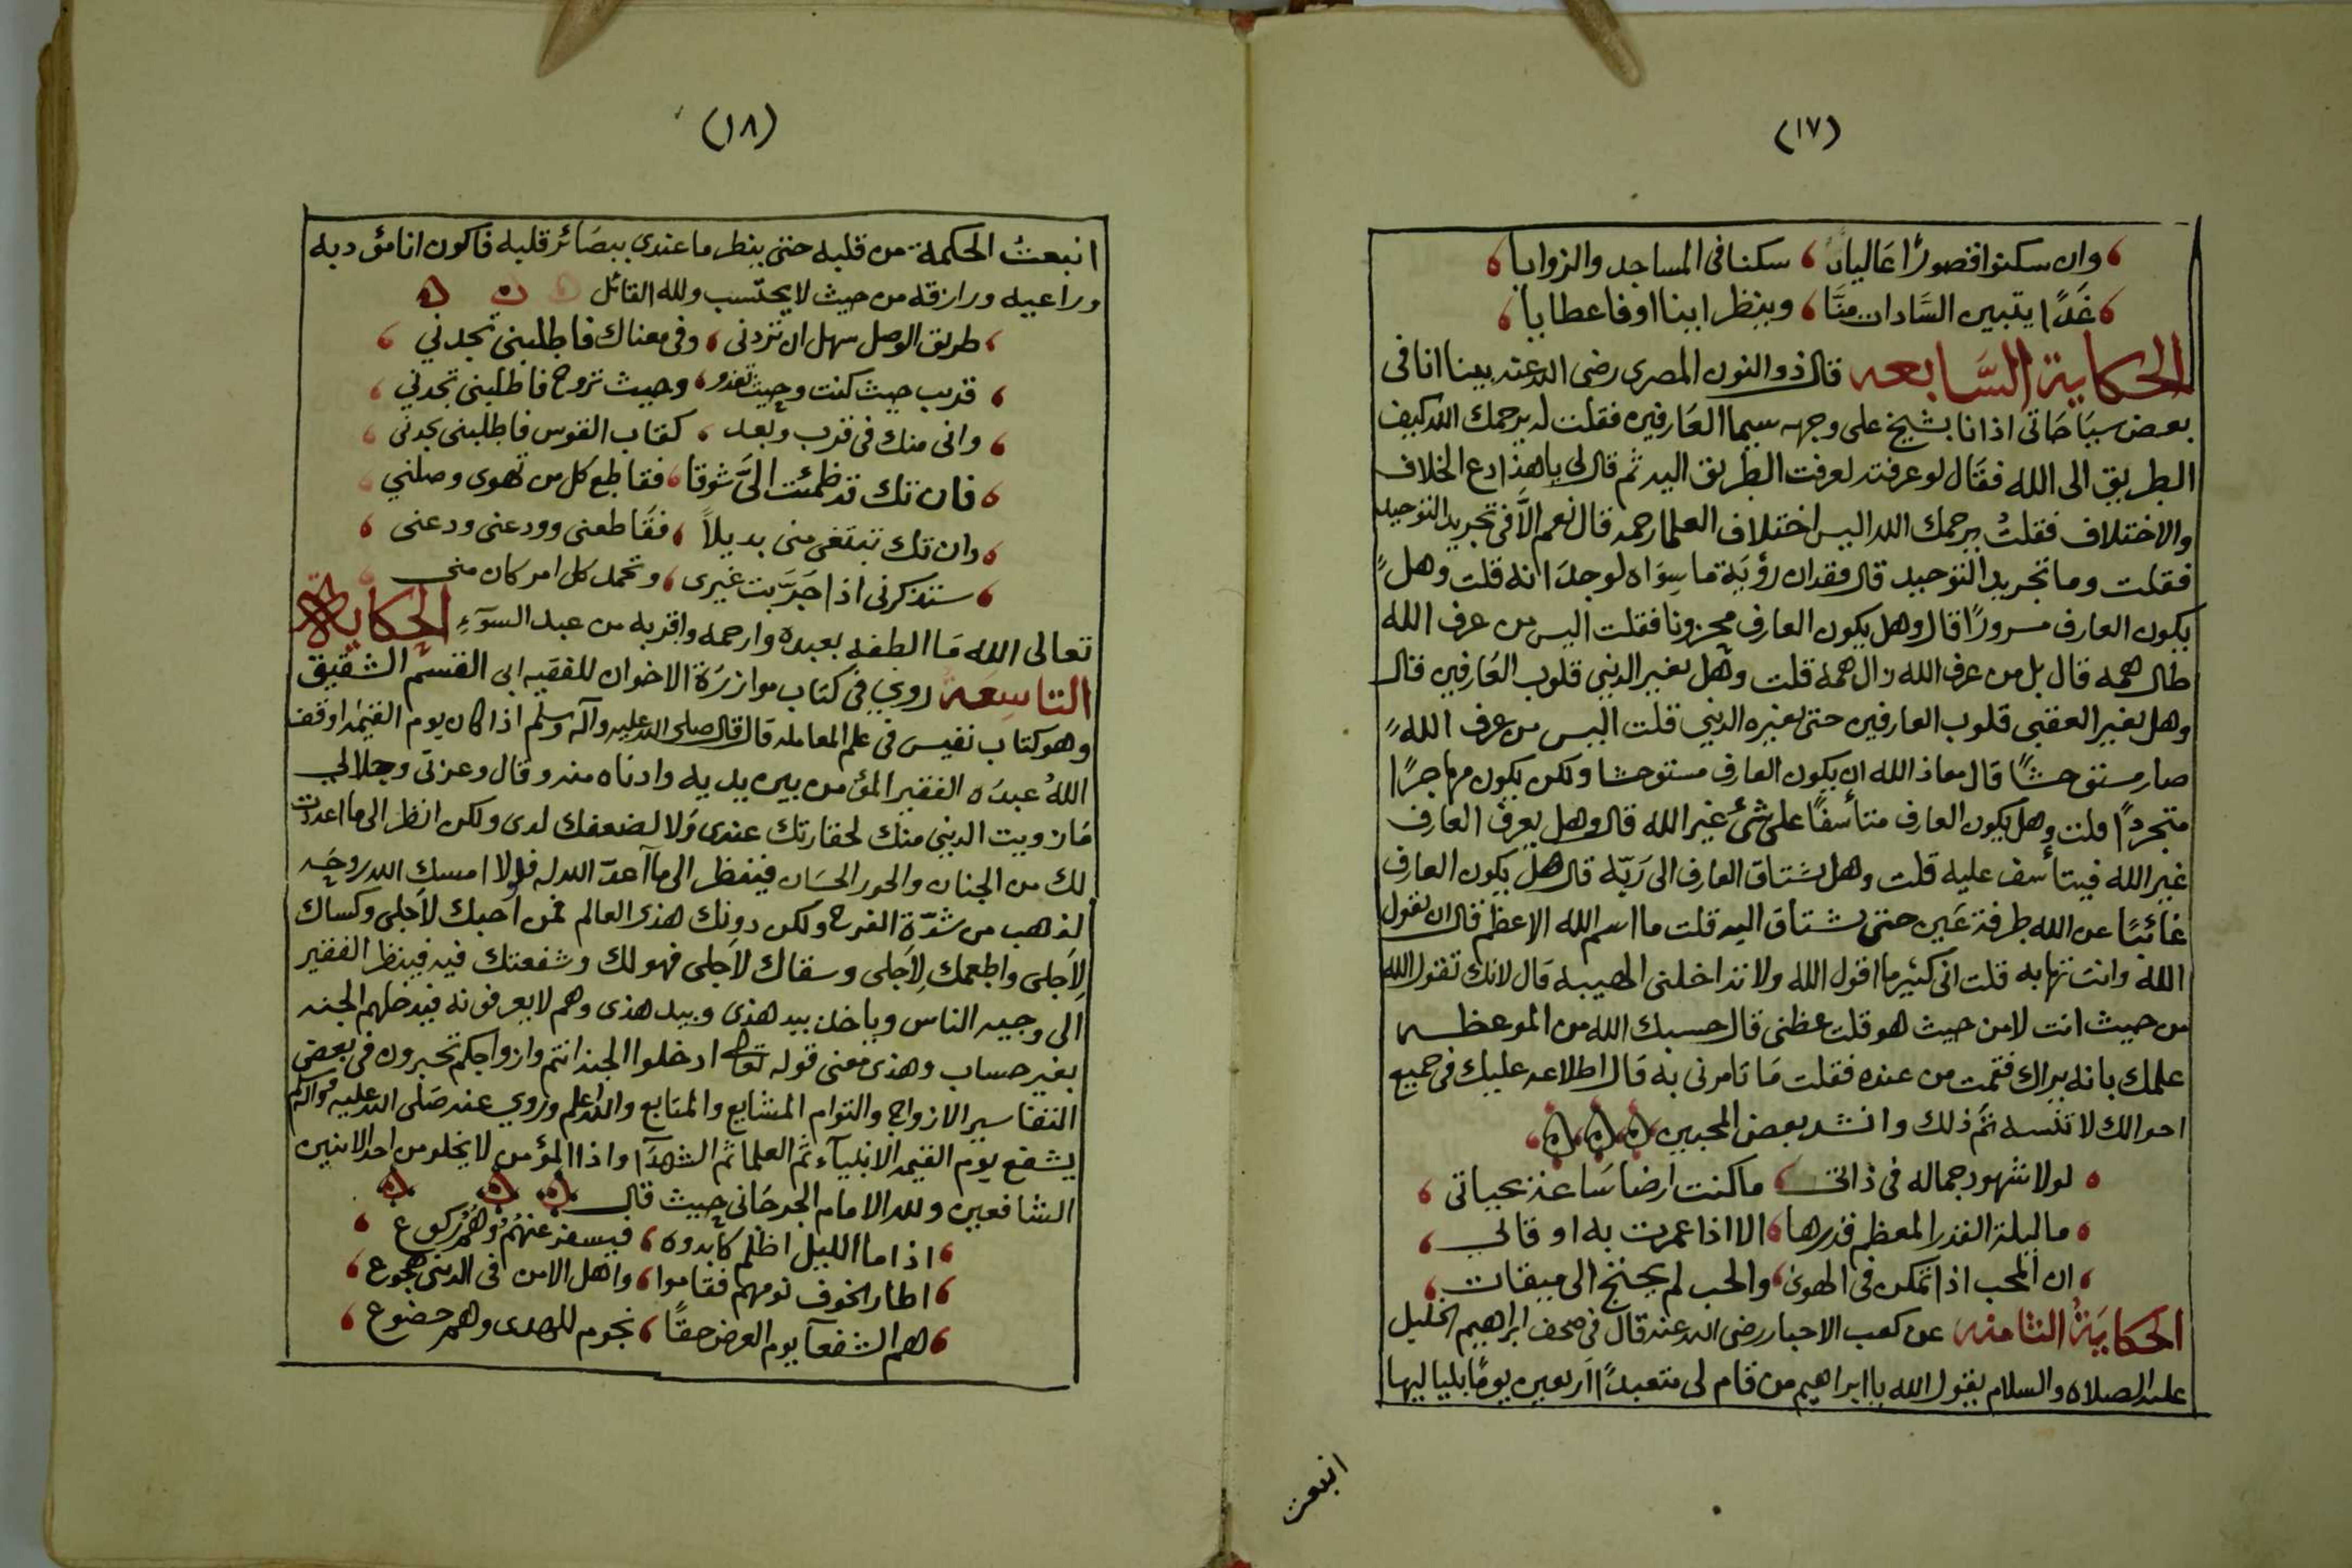 (١٧)
وان سكنوا قصورًا عاليات سكنا فى المساجد والزوايا
غدًا يتبين السَّادات منَّا وينظر اينا اوفا عطايا
الحكاية السَّابعه قال ذو النون المصرى رضى الله عنه بينا انا فى
بعض سياحاتى اذ انا بشيخ على وجهه سيما العارفين فقلت له يرحمك الله كيف
الطريق الى الله فقال لو عرفته لعرفت الطريق اليه ثم قال لى ياهذا دع الخلاف
والاختلاف فقلتُ يرحمك الله اليس اختلاف العلما رحمه قال نعم الَّا فى تجريد التوحيد
فقلت وما تجريد التوحيد قال فقدان رؤية ما سواه لوحدانه قلت وهل
يكون العارف مسرورًا قال وهل يكون العارف محزونا فقلت اليس من عرف الله
طال همه قال بل من عرف الله زال همه قلت وهل تغير الدينى قلوب العارفين قال
وهل تغير العقبى قلوب العارفين حتى تغيره الدينى قلت اليس من عرف الله
صار مستوحشًا قال معاذ الله ان يكون العارف مستوحشا ولكن يكون مهاجرًا
متجردًا قلت وهل يكون العارف متأسفًا على شئ غير الله قال وهل يعرف العارف
غير الله فيتأسف عليه قلت وهل يشتاق العارف الى ربّه قال هل يكون العارف
غائبًا عن الله طرفة عين حتى يشتاق اليه قلت ما اسم الله الاعظم قال ان تقول
الله وانت تهابه قلت انى كثير ما اقول الله ولا تداخلنى الهيبه قال لانك تقول الله
من حيث انت لا من حيث هو قلت عظنى قال حسبك الله من الموعظه
علمك بانه يراك فقمت من عنده فقلت ما تامرنى به قال اطلاعه عليك فى جميع
احوالك لا تنسه ثم ذلك وانشد بعض المحبين
لولا شهود جماله فى ذاتى ما كنت ارضا ساعة بحياتى
ما ليلة القدر المعظم قدرها الا اذا عمرت به اوقاتى
ان المحب اذا تمكن فى الهوى والحب لم يحتج الى ميقات
الحكايةُ الثامنه عن كعب الاحبار رضى الله عنه قال فى صحف ابراهيم الخليل
عليه الصلاه والسلام يقول الله يا ابراهيم من قام لى متعبدًا اربعين يومًا بلياليها
انبعث
(١٨)
انبعثُ الحكمة من قلبه حتى ينظر ما عندى ببصائر قلبه فاكون انا مؤدبه
وراعيه ورازقه من حيث لا يحتسب ولله القائل
طريق الوصل سهل ان تردنى وفى معناك فاطلبنى تجدني
قريب حيث كنت وحيث تغدو وحيث تروح فاطلبنى تجدني
وانى منك فى قرب وبعد كقاب القوس فاطلبنى تجدنى
فان تك قد ظمئت الىَّ شوقا فقاطع كل من تهوى وصلني
وان تك تبتغى منى بديلاً فقاطعنى وودعنى ودعنى
ستذكرنى اذا جرَّبت غيرى وتحمد كل امر كان منى
تعالى الله ما الطفه بعبده وارحمه واقربه من عبد السوٓء الحكاية
التاسعة روي فى كتاب موازرة الاخوان للفقيه ابى القسم الشقيق
وهو كتاب نفيس فى علم المعامله قال قال صلى الله عليه وآله وسلم اذا كان يوم القيٰمه اوقف
اللهُ عبدَه الفقير المؤمن بين يديه وادناه منه وقال وعزتى وجلالي
ما زويت الدينى منك لحقارتك عندى ولا لضعفك لدى ولكن انظر الى ما اعددت
لك من الجنان والحور الحسان فينظر الى ما اعدّ الله له فلولا امسك الله روحه
لذهب من شدّة الفرح ولكن دونك هذى العالم فمن احبك لاجلى وكساك
لاجلى واطعمك لاجلى وسقاك لاجلى فهو لك وشفعتك فيه فينظر الفقير
الى وجيه الناس وياخذ بيد هذى وبيد هذى وهم لا يعرفونه فيدخلهم الجنه
بغير حساب وهذى معنى قوله تعالى ادخلوا الجنة انتم وازواجكم تحبرون فى بعض
التفاسير الازواج والتوام المشايع والمتابع والله اعلم وروي عنه صلى الله عليه وآله
يشفع يوم القيٰمه الانبيآء ثم العلما ثم الشهدآ واذا المؤمن لا يخلو من احد الاثنين
الشافعين ولله الامام الجرجانى حيث قال
اذا ما الليل اظلم كابدوه فيسفر عنهُم وهُم ركوع
اطار الخوف نومهم فقاموا واهل الامن فى الدينى هجوع
هم الشفعآ يوم العرض حقًا نجوم للهدى وهم خضوع